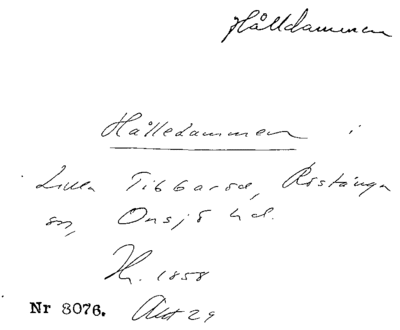 Hålldammen
Hålledammen i
Lilla Tibbaröd, Röstånga
sn, Onsjö hd.
Hk. 1858
Nr 8076. Akt 29